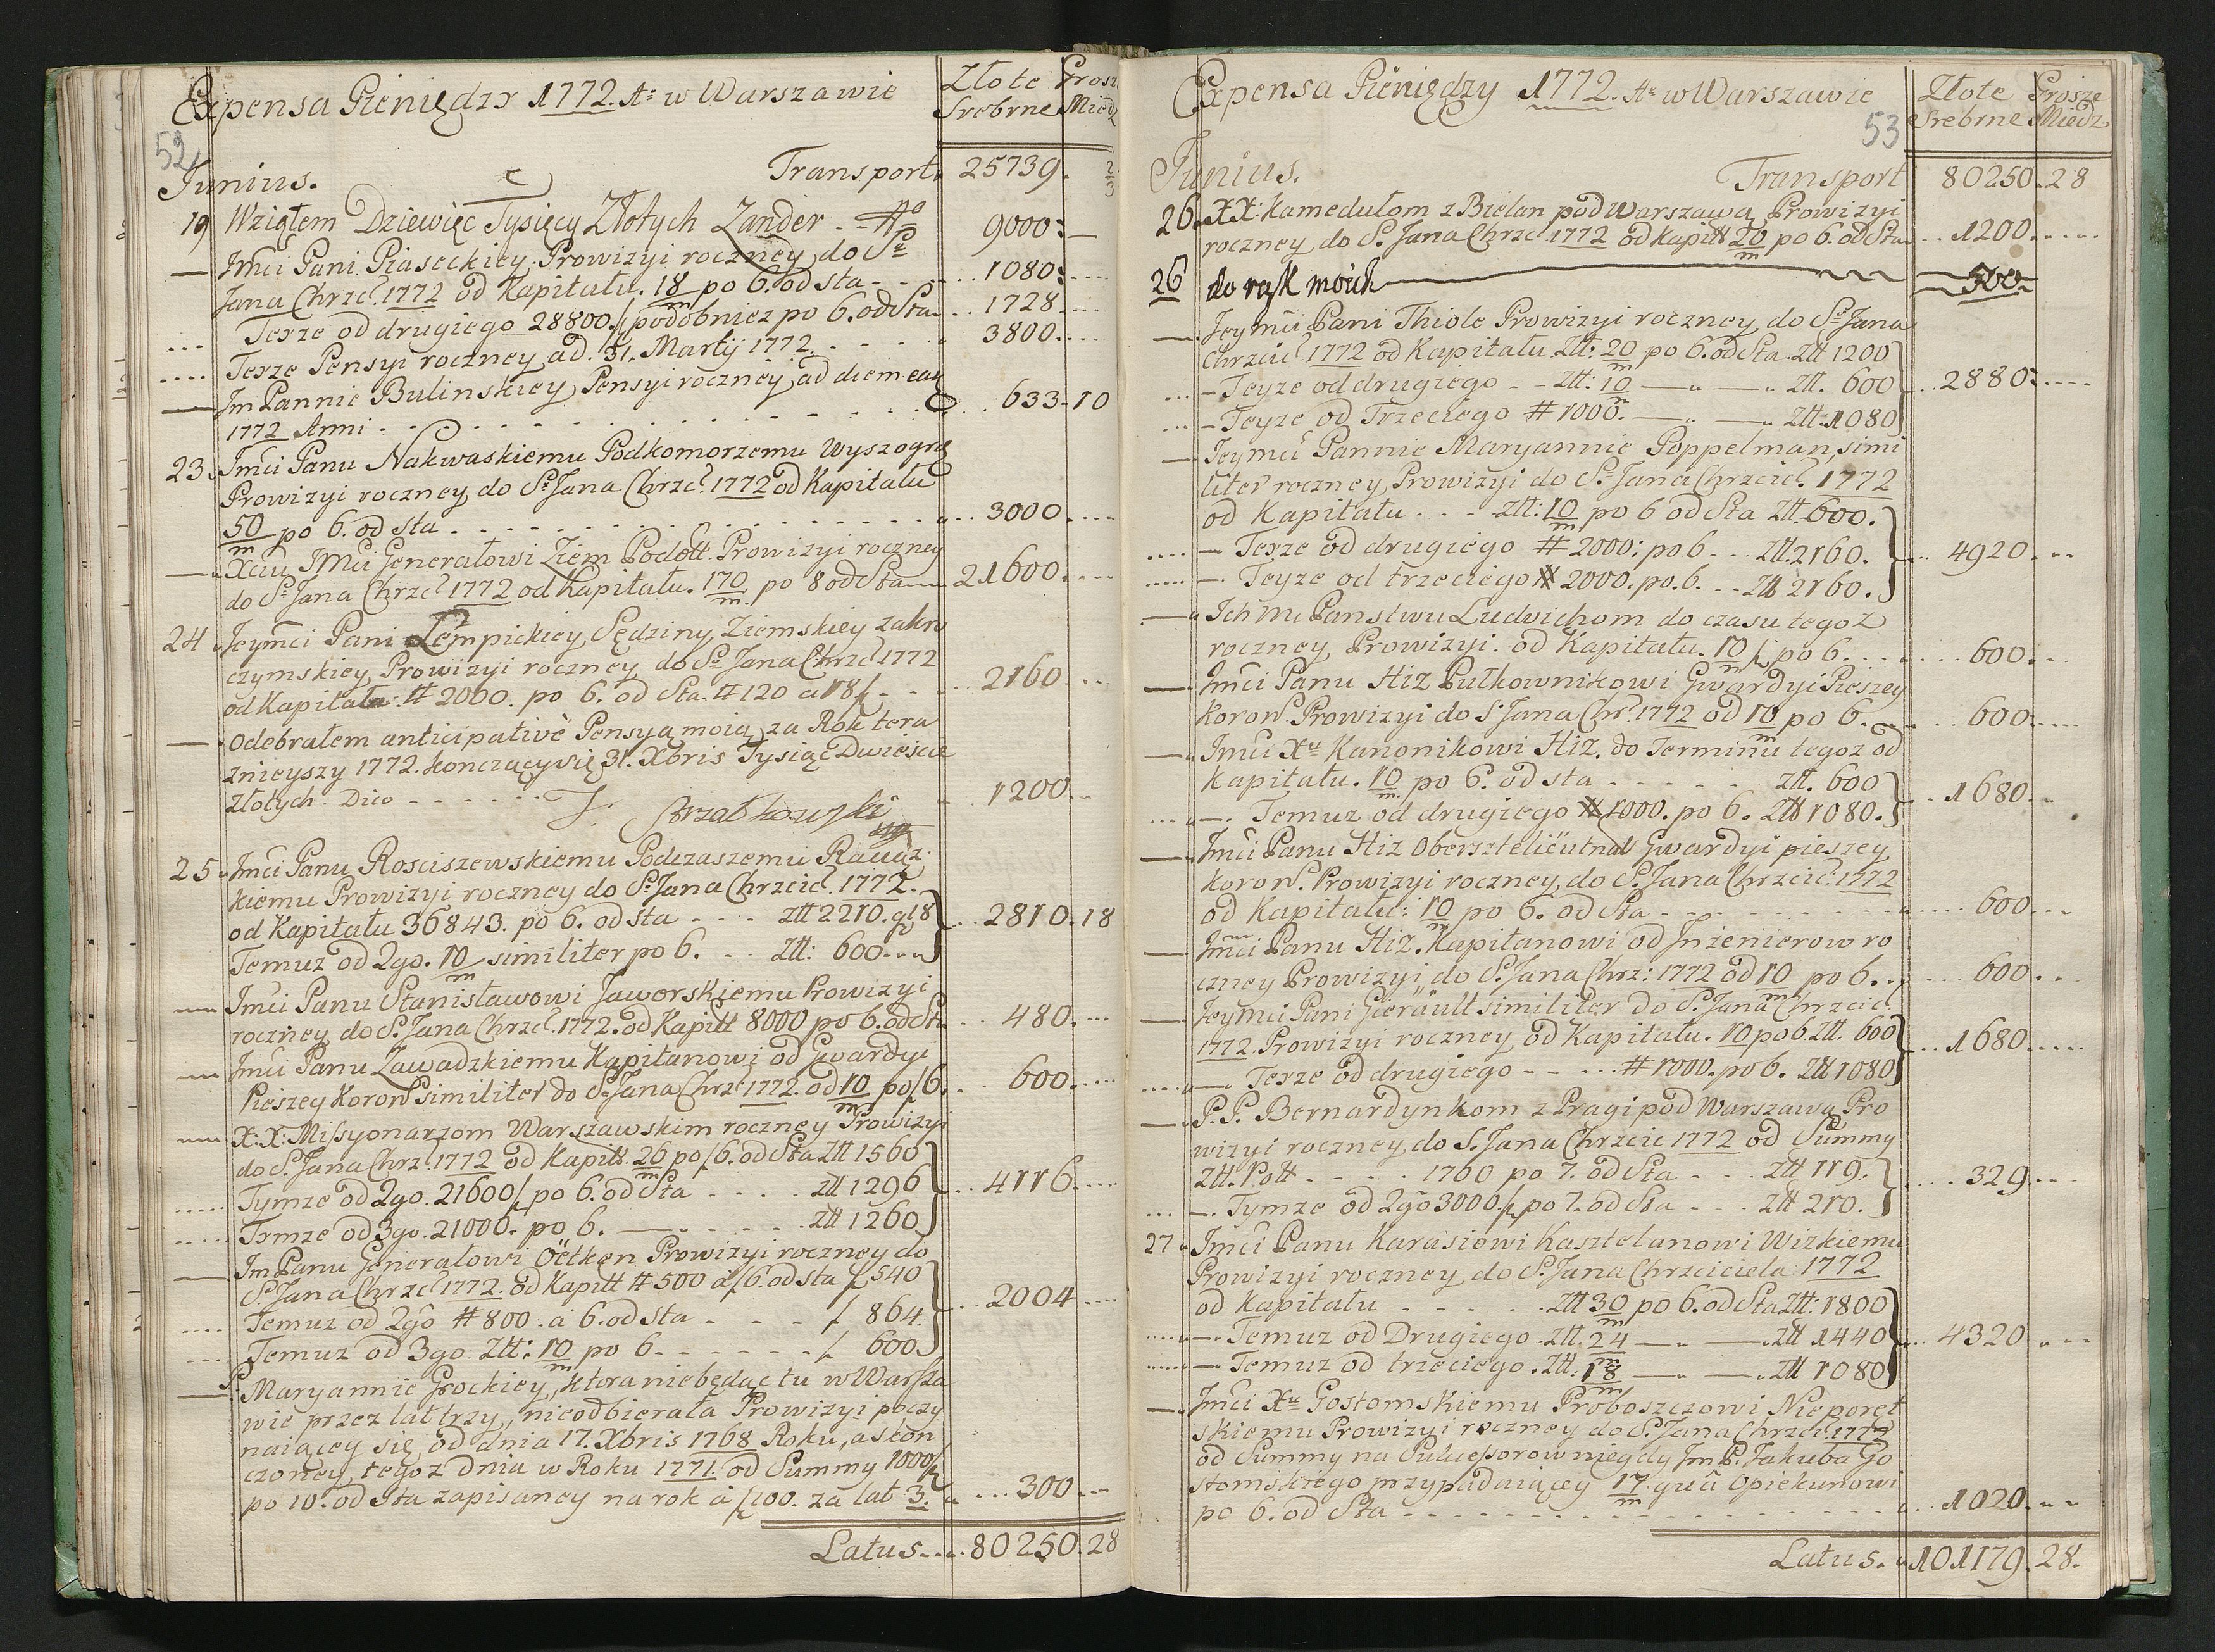 Expensa Pieniędzy 1772. Aº w Warszawie
Złote Grosz
Srebrne Miedz
52
Junius.
Transport. 25739.
19 Wziąłem Dziewięc Tysięcy Złotych Zander 9000:
Jmći Pani Piaseckiey Prowizyi roczney do Sº
Jana Chrzcl 1772 od Kapitału. 18/m po 6. od sta 1080:
Teyze od drugiego 28800. podobniez po 6. od Sta 1728.
Teyze Pensyi roczney ad. 31. Martij 1772. 3800.
Jm Pannie Bulinskiey Pensyi roczney ad diem ean
1772 Anni 633.10
23. Jmći Panu Nakwaskiemu Podkomorzemu Wyszogrę
Prowizyi roczney do Sº Jana Chrzcl 1772 od Kapitału
50/m po 6. od sta 3000.
Xciu JMći Generałowi Ziem Podoll. Prowizyi roczney
do Sº Jana Chrzcl 1772 od Kapitału. 170/m. po 8 od Sta 21600.
24 Jeymći Pani Łempickiey, Sędziny Ziemskiey zakro
czymskiey, Prowizyi roczney do Sº Jana Chrzcl 1772
od Kapitału # 2000. po 6. od Sta. # 120 a 18 2160
Odebrałem anticipativè Pensyą moią za Rok tera
znieyszy 1772. konczący się 31. Xbris Tysiąc Dwieście
złotych. Dico 1200
J. Strzałkowski mp
25 Jmći Panu Rosciszewskiemu Podczaszemu Rawąz
kiemu Prowizyi roczney do Sº Jana Chrzcicl. 1772.
od Kapitału 36843. po 6. od sta Ztt 2210. gl 8
Temuz od 2go. 10/m similiter po 6. Ztt: 600 2810.18
Jmći Panu Stanisławowi Jaworskiemu Prowizyi
roczney do Sº Jana Chrzcl. 1772. od Kapitt 8000 po 6. od Sta 480.
Jmći Panu Zawadzkiemu Kapitanowi od Gwardyi
Pieszey Koron similiter do Sº Jana Chrz 1772. od 10/m po 6. 600.
X:X: Missyonarzom Warszawskim roczney Prowizyi
do Sº Jana Chrzl 1772 od Kapitt. 26/m po 6. od Sta Ztt 1560
Tymze od 2go. 21600 po 6. od Sta Ztt 1296 4116.
Tymze od 3go. 21000. po 6. Ztt 1260
Jm Panu Generałowi Öetken Prowizyi roczney do
Sº Jana Chrzcl 1772. od Kapitt # 500 à 6. od sta 540
Temuz od 2go # 800. à 6. od sta 864. 2004
Temuz od 3go. Ztt: 10/m po 6 600
P. Maryannie Grockiey, ktora niebędąc tu w Warsza
wie przez lat trzy, nieodbierała Prowizyi poczy
naiącey się od dnia 17. Xbris 1768 Roku, a skon
czoney tegoz dnia w Roku 1771. od Summy 1000
po 10. od Sta zapisaney na rok à 100. za lat 3. 300
Latus. 80250.28
Expensa Pieniędzy 1772. Aº w Warszawie
Złote Grosze
Srebrne Miedz
53
Junius.
Transport 80250.28
26. XX: Kamedułom z Bielan pod Warszawą Prowizyi
roczney do Sº Jana Chrzcl 1772 od Kapitt 20/m po 6. od Sta 1200
26 do rąk moich 500
Jeymći Pani Thiole Prowizyi roczney do Sº Jana
Chrzcicl 1772 od Kapitału Ztt: 20/m po 6. od Sta Ztt 1200
Teyze od drugiego Ztt: 10/m Ztt. 600 2880:
Teyze od Trzeciego # 1000. Ztt 1080
Jeymći Pannie Maryannie Poppelman, simi
liter roczney, Prowizyi do Sº Jana Chrzcicl. 1772
od Kapitału Ztt: 10/m po 6 od Sta Ztt. 600.
Teyze od drugiego # 2000: po 6 Ztt. 2160. 4920
Teyze od trzeciego # 2000. po. 6. Ztt 2160.
Ich Mć Panstwu Ludvichom do czasu tegoz
roczney, Prowizyi. od Kapitału. 10/m po 6. 600.
Jmći Panu Hiz Pułkownikowi Gwardyi Pieszey
Koron. Prowizyi do S Jana Chrº 1772 od 10/m po 6. 600.
Jmći Xu Kanonikowi Hiz. do Terminu tegoz od
Kapitału. 10/m po 6. od sta Ztt. 600
Temuz od drugiego # 1000. po 6. Ztt 1080. 1680.
Jmći Panu Hiz Oberszteliëutnal Gwardyi pieszey
koron. Prowizyi roczney, do S. Jana Chrzcicl: 1772
od Kapitału: 10/m po 6. od Sta 600
Jmći Panu Hiz. Kapitanowi od Jnżenierow ro
czney Prowizyi, do Sº Jana Chrz: 1772 od 10/m po 6. 600
Jeymći Pani Gierault similiter do Sº Jana Chrzcicl
1772. Prowizyi roczney od Kapitału. 10 po 6. Ztt. 600
Teyze od drugiego # 1000. po 6. Ztt 1080 1680
P.P. Bernardynkom z Pragi pod Warszawą Pro
wizyi roczney, do S. Jana Chrzcic 1772 od Summy
Ztt. Poll 1700 po 7. od Sta Ztt 119.
Tymze od 2go 3000 po 7. od Sta Ztt 210. 329
27 Jmći Panu Karasiowi Kasztelanowi Wizkiemu
Prowizyi roczney do Sº Jana Chrzciciela 1772
od Kapitału Ztt 30/m po 6. od Sta Ztt: 1800
Temuz od Drugiego Ztt. 24/m Ztt 1440 4320
Temuz od trzeciego. Ztt: 18/m Ztt 1080
Jmći Xu Gostomskiemu Proboszczowi Nieporęt
skiemu Prowizyi roczney do Sº Jana Chrzcl. 1772
od Summy na Sukcessorow niegdy Jm P. Jakuba Go
stomskiego przypadaiącey 17/m. qua Opiekunowi
po 6. od Sta 1020
Latus. 101179.28.